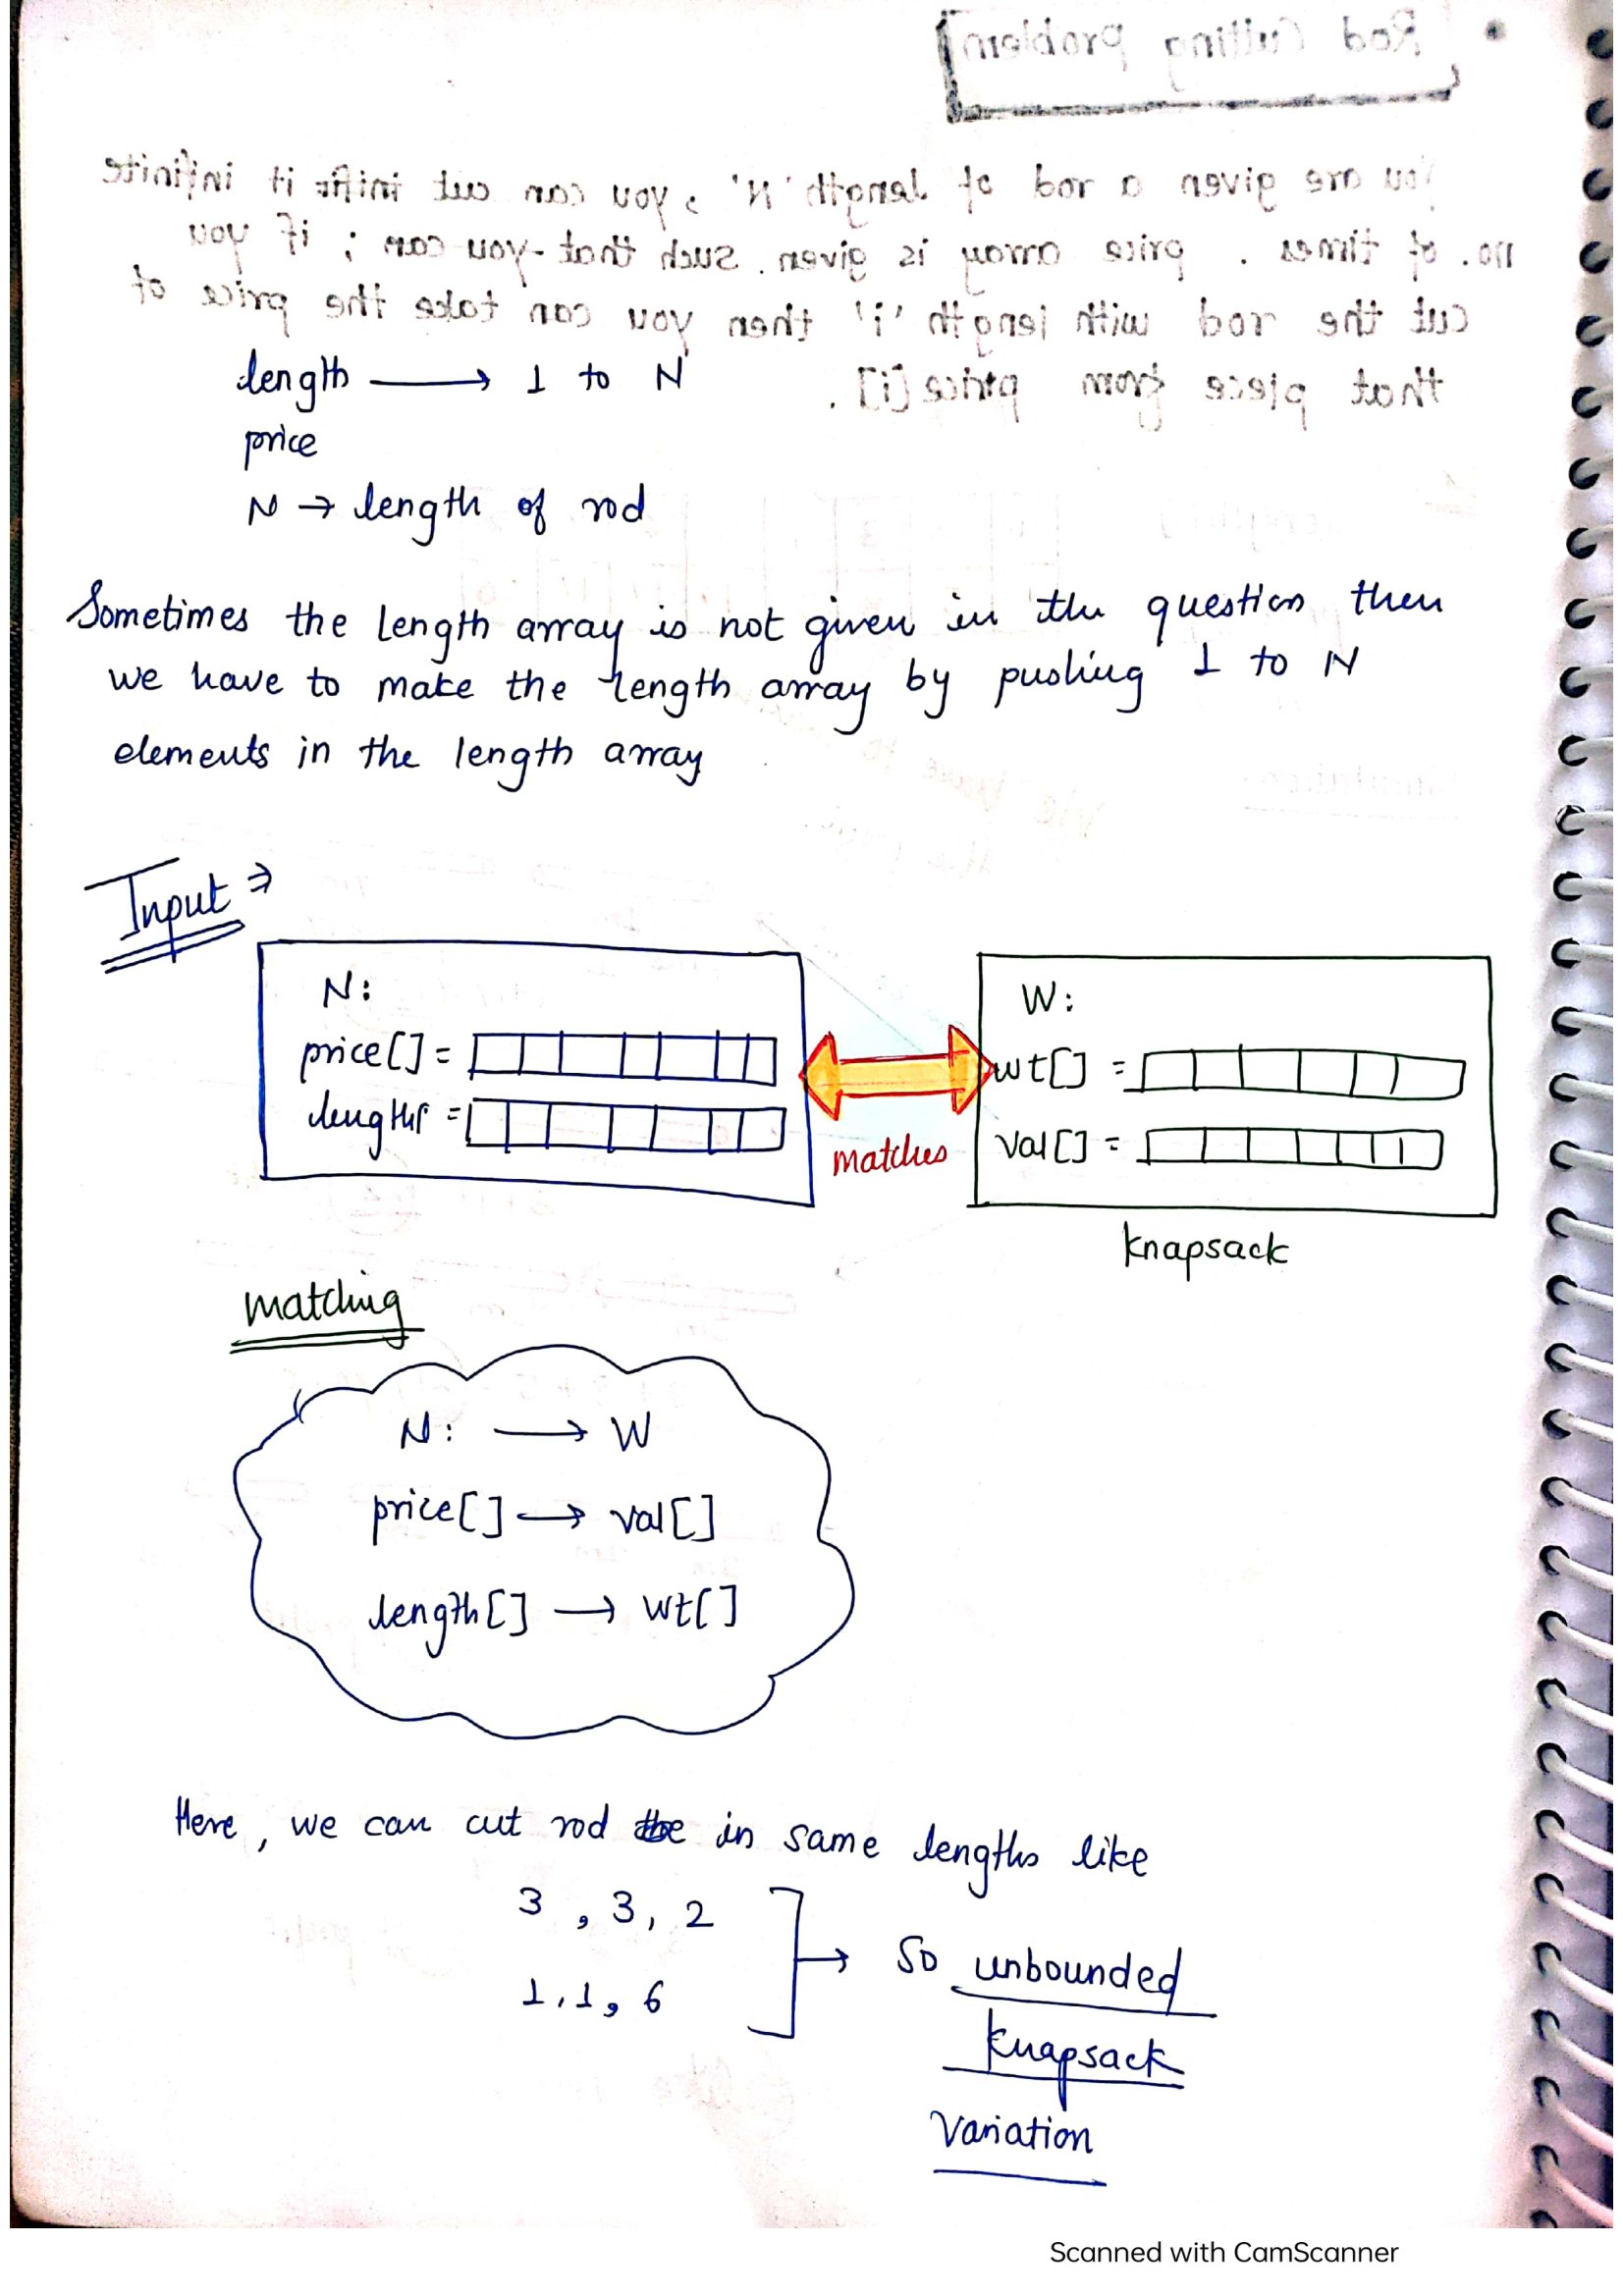 • Rod Cutting problem
You are given a rod of length 'N', you can cut it infinite
no. of times. price array is given. such that you can ; if you
cut the rod with length 'i' then you can take the price of
that piece from price[i].
length ⟶ 1 to N
price
N → length of rod
Sometimes the length array is not given in the question then
we have to make the length array by pushing 1 to N
elements in the length array
Input ⇒
N:
price[] =
length =
matches
W:
wt[] =
val[] =
knapsack
matching
N: ⟶ W
price[] ⟶ val[]
length[] ⟶ wt[]
Here, we can cut rod in same lengths like
3 , 3, 2
1, 1, 6
→ So unbounded
knapsack
Variation
Scanned with CamScanner